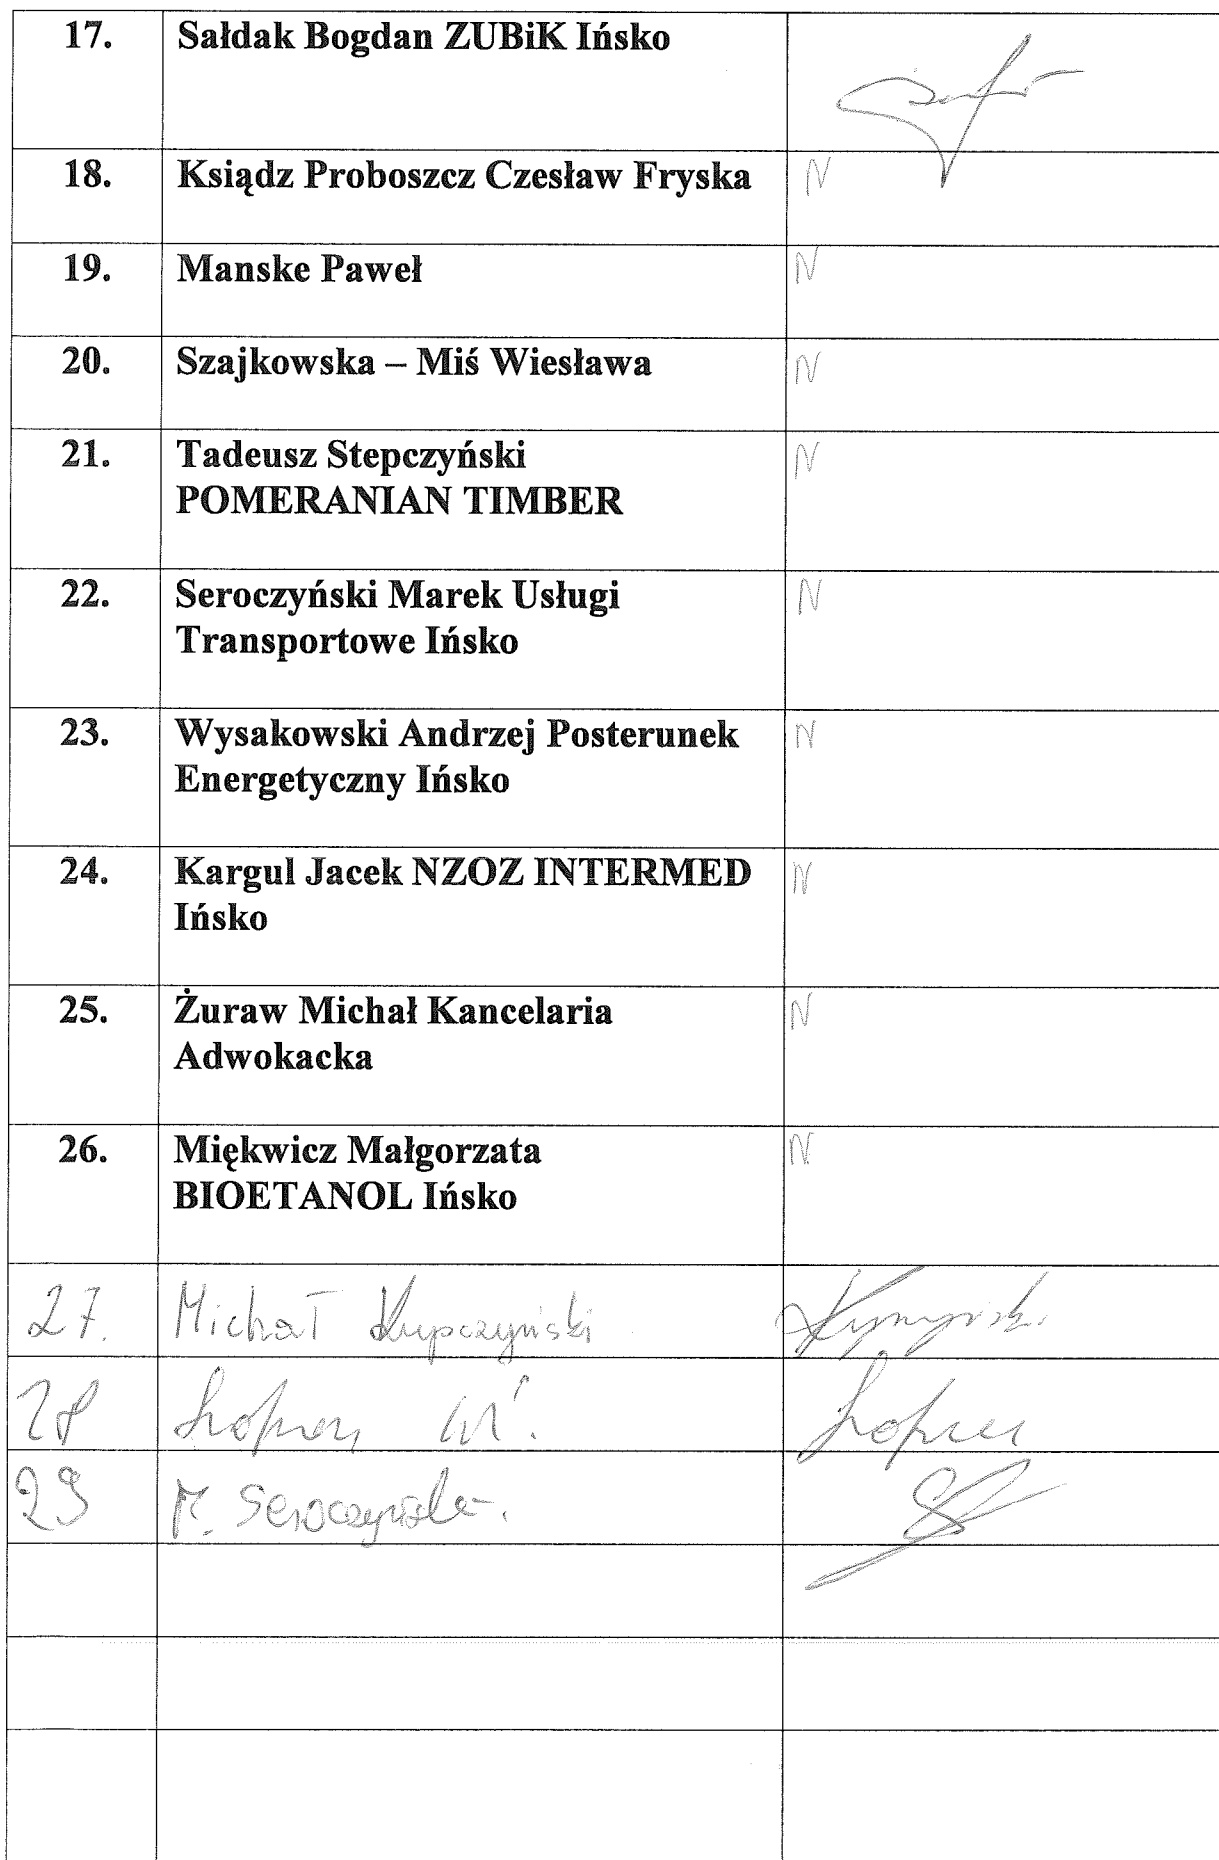 17. Sałdak Bogdan ZUBiK Ińsko
18. Ksiądz Proboszcz Czesław Fryska N
19. Manske Paweł N
20. Szajkowska – Miś Wiesława N
21. Tadeusz Stepczyński N
POMERANIAN TIMBER
22. Seroczyński Marek Usługi N
Transportowe Ińsko
23. Wysakowski Andrzej Posterunek N
Energetyczny Ińsko
24. Kargul Jacek NZOZ INTERMED N
Ińsko
25. Żuraw Michał Kancelaria N
Adwokacka
26. Miękwicz Małgorzata N
BIOETANOL Ińsko
27. Michał Kupczyński
28
29